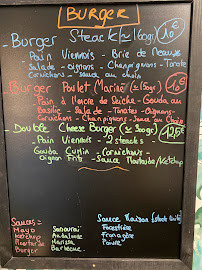 BURGER
- Burger Steack (± 160g) 10€
- Pain Viennois - Brie de Meaux
- Salade - Oignons - Champignons - Tomate
- Cornichons - Sauce au choix
- Burger Poulet Mariné (± 150g) 10€
- Pain à l'encre de Seiche - Gouda au
Basilic - Salade - Tomates - Oignons
- Cornichons - Champignons - Sauce au Choix
- Double Cheese Burger (± 300gr) 12,5€
- Pain Viennois - 2 steacks
Gouda Cumin Cornichons -
Oignon Frits - Sauce Moutarde/Ketchup
Sauces: Sauce Maison
Mayo Samouraï Forestière
Ketchup Andalouse Fromagère
Harissa Poivre
Burger Barbecue